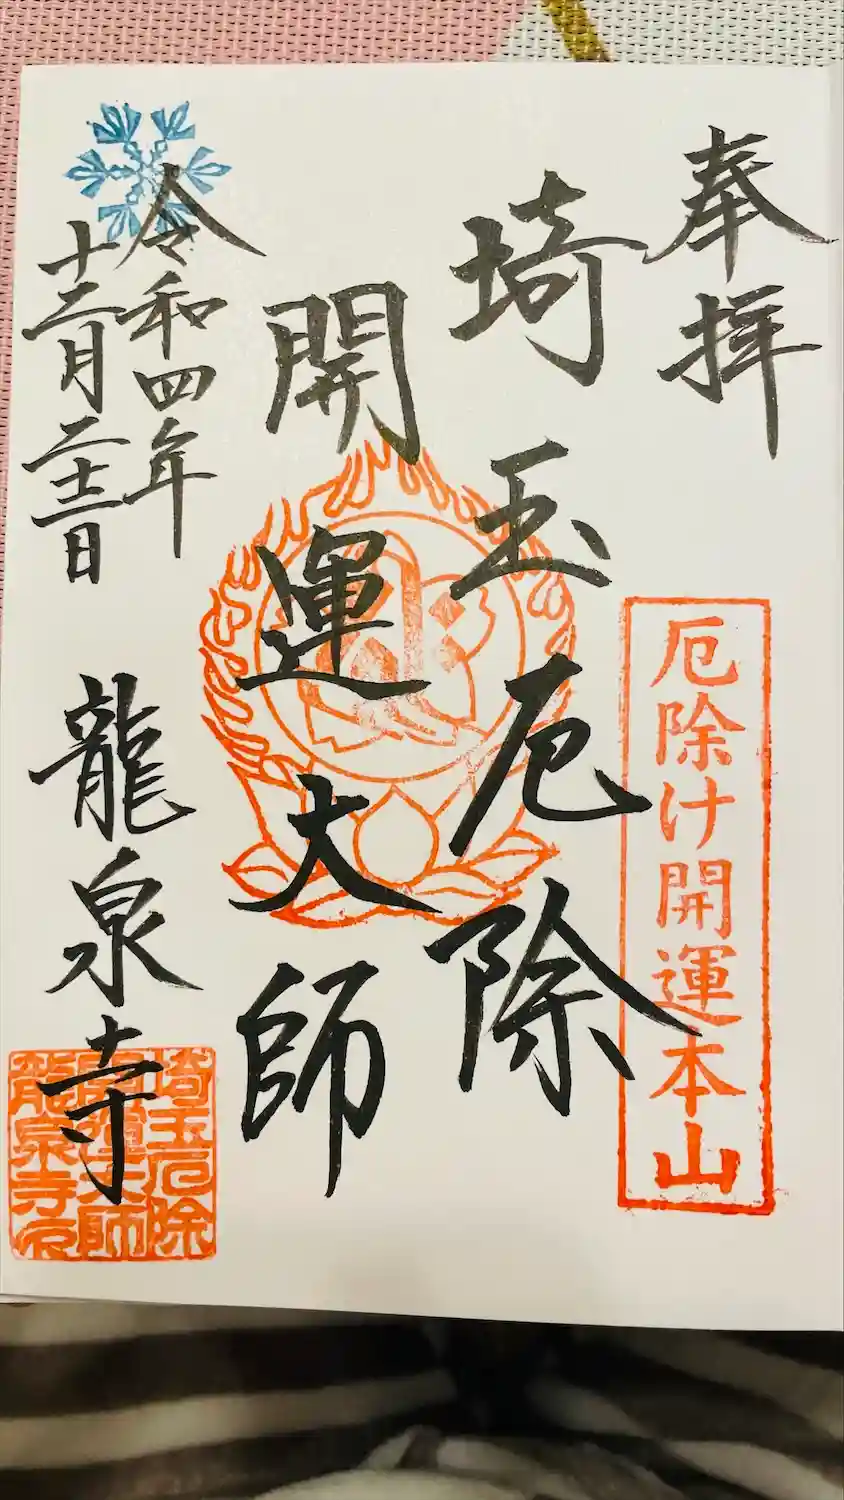 奉拝
厄除け開運本山
埼玉厄除
開運大師
令和四年
十二月二十二日
龍泉寺
埼玉厄除
開運大師
龍泉寺印